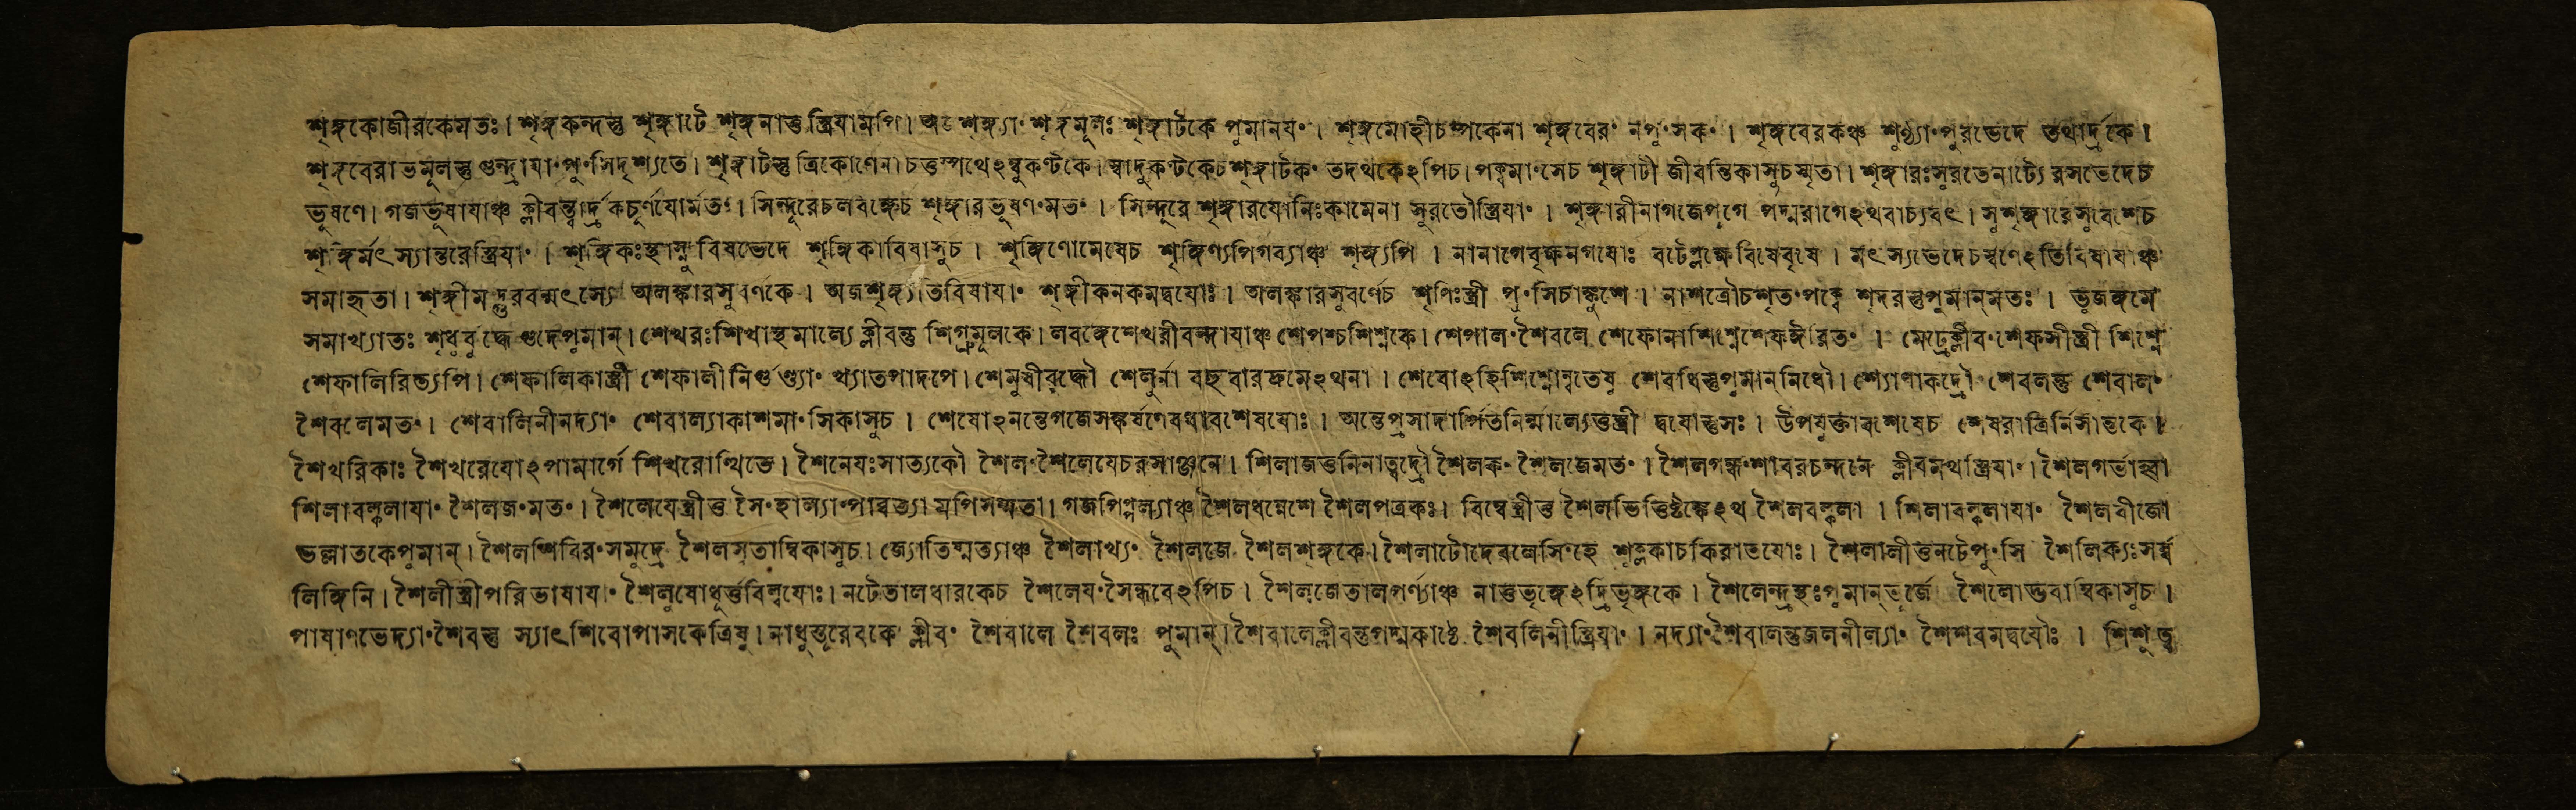 শৃঙ্গকোজীরকেমতঃ। শৃঙ্গকন্দস্তু শৃঙ্গাটে শৃঙ্গনাস্তুস্ত্রিযামপি। শৃঙ্গ্যাং শৃঙ্গমূলঃ শৃঙ্গাটকে পুমানযং। শৃঙ্গমোহীচম্পকেনা শৃঙ্গবেরং নপুংসকং। শৃঙ্গবেরকঞ্চ শুণ্ঠ্যাংপুরভেদে তথার্দ্রকে।
শৃঙ্গবেরাভমূলস্তু গুন্দ্রাযাংপুংসিদৃশ্যতে। শৃঙ্গাটস্তু ত্রিকোণেনা চতুষ্পথেঽম্বুকণ্টকে। স্বাদুকণ্টকেচ শৃঙ্গাটকং তদর্থকেঽপিচ। পক্বমাংসেচ শৃঙ্গাটী জীবন্তিকাসুচস্মৃতা। শৃঙ্গারঃসুরতেনাট্যে রসভেদেচ
ভূষণে। গজভূষাযাঞ্চ ক্লীবন্ত্বার্দ্রকচূর্ণযোর্মতং। সিন্দূরেচলবঙ্গেচ শৃঙ্গারভূষণংমতং। সিন্দূরে শৃঙ্গারযোনিঃকামেনা সুরতৌস্ত্রিযাং। শৃঙ্গারীনাগজেপূগে পদ্মরাগেঽথবাচ্যবৎ। সুশৃঙ্গারেসুবেশেচ
শৃঙ্গির্মৎস্যান্তরেস্ত্রিযাং। শৃঙ্গিকঃস্থাস্নুবিষভেদে শৃঙ্গিকাবিষাসুচ। শৃঙ্গিণোমেষেচ শৃঙ্গিণ্যপিগব্যাঞ্চ শৃঙ্গ্যপি। নানাগেবৃক্ষনগযোঃ বটেপ্লক্ষেবিষেবৃষে। মৎস্যভেদেচস্বর্ণেঽতিবিষাযাঞ্চ
সমাহৃতা। শৃঙ্গীমদ্গুরবন্মৎস্যে অলঙ্কারসুবর্ণকে। অজশৃঙ্গ্যতিবিষাযাং শৃঙ্গীকনকমদ্বযোঃ। অলঙ্কারসুবর্ণেচ শৃণিঃস্ত্রী পুংসিচাঙ্কুশে। শৃতংপক্বে শৃদরস্তুপুমান্মতঃ। ভুজঙ্গমে
সমাখ্যাতঃ শৃধুর্বুদ্ধেগুদেপুমান্। শেখরঃশিখাস্থমাল্যে ক্লীবন্তু শিগ্রুমূলকে। লবঙ্গেশেখরীবন্দাযাঞ্চ শেপশ্চশিশ্নকে। শেপালংশৈবলে শেফোনাশিশ্নেশেফঈরিতং। মেঢ্রেক্লীবংশেফসীস্ত্রী শিশ্নে
শেফালিরিত্যপি। শেফালিকাস্ত্রী শেফালীনির্গুণ্ড্যাং খ্যাতপাদপে। শেমুষীবুদ্ধৌ শেলুর্না বহুবারদ্রুমেঽথনা। শেবোঽহিশিশ্নোন্নতেষু শেবধিস্তুপুমান্নিধৌ। শ্যোণাকদ্রৌ শেবলন্তু শেবালং
শৈবলেমতং। শেবালিনীনদ্যাং শেবাল্যাকাশমাংসিকাসুচ। শেষোঽনন্তেগজেসঙ্কর্ষণেবধাবশেষযোঃ। অন্তেপ্রসাদার্পিতনির্মাল্যেতুস্ত্রী দ্বযোস্তুসঃ। উপযুক্তাবশেষেচ শেষরাত্রির্নিসান্তকে।
শৈখরিকাঃ শৈখরেযোঽপামার্গে শিখরোত্থিতে। শৈনেযঃসাত্যকৌ শৈলংশৈলেযেচরসাঞ্জনে। শিলাজতুনিনাত্বদ্রৌ শৈলকংশৈলজেমতং। শৈলগন্ধংশাবরচন্দনে ক্লীবমথস্ত্রিযাং। শৈলগর্ভাহ্বা
শিলাবল্কলাযাং শৈলজংমতং। শৈলেযেস্ত্রীতু সৈংহাল্যাংপার্বত্যামপিসম্মতা। গজপিপ্পল্যাঞ্চ শৈলধন্বেশে শৈলপত্রকঃ। বিল্বেস্ত্রীতু শৈলভিত্তিষ্টঙ্কেঽথ শৈলবল্কলা। শিলাবল্কলাযাং শৈলবীজো
ভল্লাতকেপুমান্। শৈলশিবিরংসমুদ্রে শৈলসুতাম্বিকাসুচ। জ্যোতিষ্মত্যাঞ্চ শৈলাখ্যং শৈলজে শৈলশৃঙ্গকে। শৈলাটোদেবলেসিংহে শুক্লকাচকিরাতযোঃ। শৈলালীতুনটেপুংসি শৈলিক্যঃসর্ব্ব
লিঙ্গিনি। শৈলীস্ত্রীপরিভাষাযাং শৈলূষোধূর্ত্তবিল্বযোঃ। নটেতালধারকেচ শৈলেযংসৈন্ধবেঽপিচ। শৈলজেতালপর্ণ্যাঞ্চ নাতুভৃঙ্গেঽদ্রিভৃঙ্গকে। শৈলেন্দ্রস্থঃপুমান্ভূর্জে শৈলোদ্ভবাম্বিকাসুচ।
পাষাণভেদ্যাংশৈবন্তু স্যাৎশিবোপাসকেত্রিষু। নাধুস্তূরেবকে ক্লীবং শৈবালে শৈবলঃ পুমান্। শৈবালেক্লীবন্তুপদ্মকাষ্ঠে শৈবলিনীস্ত্রিযাং। নদ্যাংশৈবালন্তুজলনীল্যাং শৈশবমদ্বযোঃ। শিশুত্ব